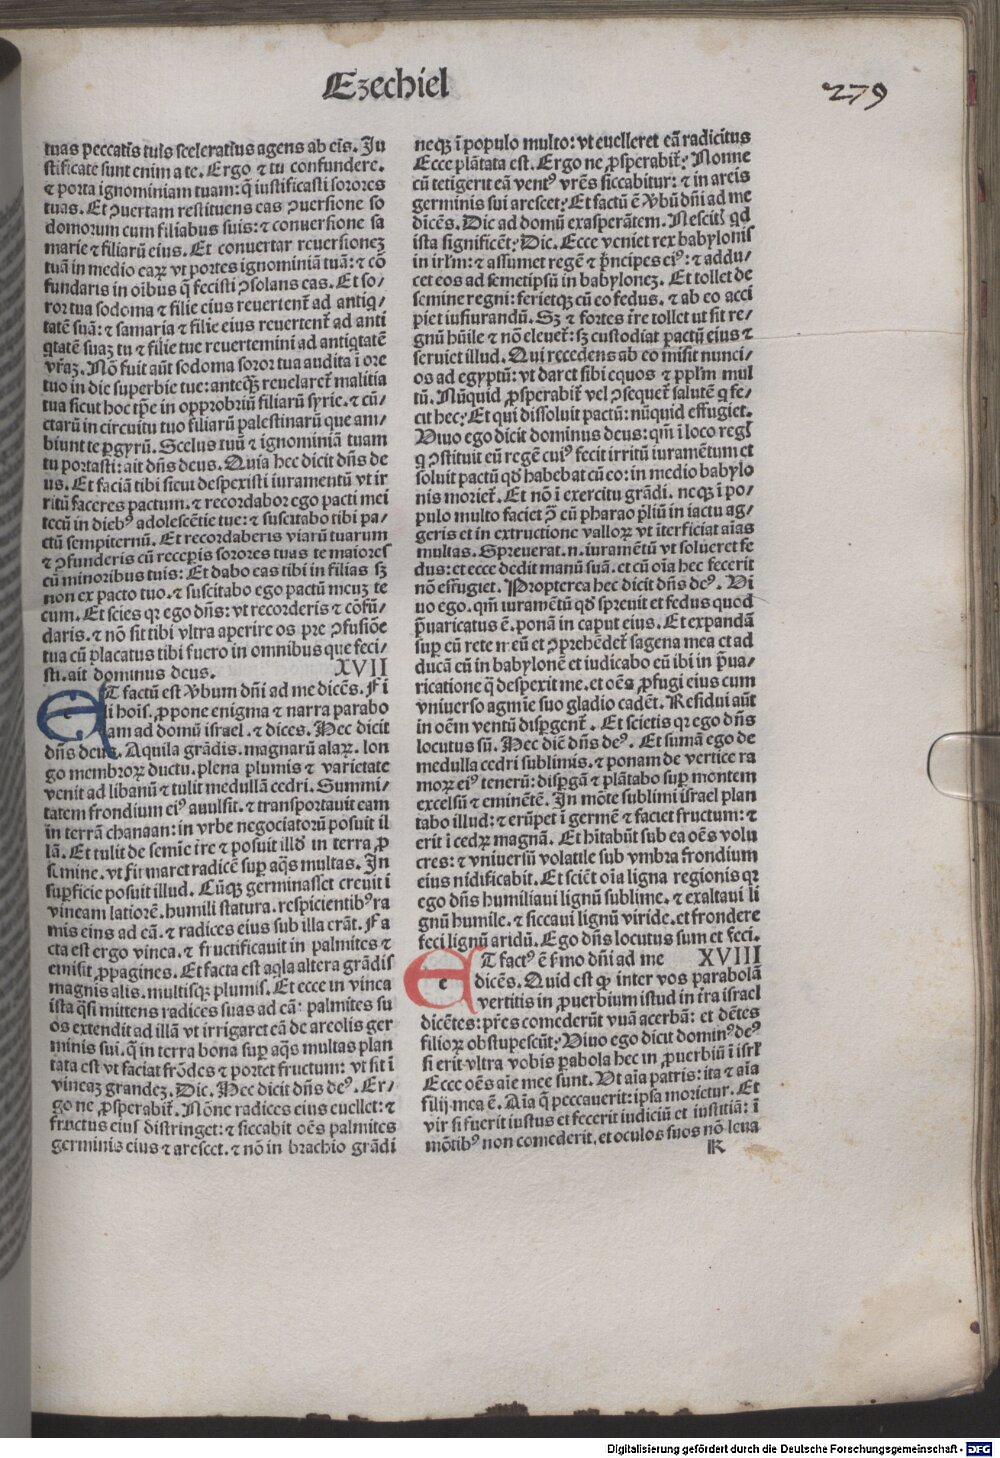 Ezechiel
279
tuas peccatis tuis sceleratius agens ab eis. Iu
stificate sunt enim a te. Ergo ⁊ tu confundere.
⁊ porta ignominiam tuam: q̄ iustificasti sorores
tuas. Et ꝯuertam restituens eas ꝯuersione so
domorum cum filiabus suis: ⁊ conuersione sa
marie ⁊ filiarū eius. Et conuertar reuersionez
tuā in medio eaꝝ vt portes ignominiā tuā: ⁊ cō
fundaris in oībus q̄ fecisti ꝯsolans eas. Et so/
ror tua sodoma ⁊ filie eius reuertent̄ ad antiq/
tatē suā: ⁊ samaria ⁊ filie eius reuertent̄ ad anti
qtatē suaz tu ⁊ filie tue reuertemini ad antiqtatē
vr̄az. Nō fuit aūt sodoma soror tua audita ī ore
tuo in die superbie tue: anteqꝫ reuelaret̄ malitia
tua sicut hoc tp̄e in opprobriū filiarū syrie. ⁊ cū/
ctarū in circuitu tuo filiarū palestinarū que am/
biunt te ꝑ gyrū. Scelus tuū ⁊ ignominiā tuam
tu portasti: ait dn̄s deus. Quia hec dicit dn̄s de
us. Et faciā tibi sicut despexisti iuramentū vt ir
ritū faceres pactum. ⁊ recordabor ego pacti mei
tecū in diebꝰ adolescētie tue: ⁊ suscitabo tibi pa/
ctū sempiternū. Et recordaberis viarū tuarum
⁊ ꝯfunderis cū receperis sorores tuas te maiores
cū minoribus tuis: Et dabo eas tibi in filias sꝫ
non ex pacto tuo. ⁊ suscitabo ego pactū meuz te
cum. Et scies qꝛ ego dn̄s: vt recorderis ⁊ cōfū/
daris. ⁊ nō sit tibi vltra aperire os pre ꝯfusiōe
tua cū placatus tibi fuero in omnibus que feci/
sti. ait dominus deus. XVII
ET factū est ꝟbum dn̄i ad me dicēs. Fi
li hoīs. ꝓpone enigma ⁊ narra parabo
lam ad domū israel. ⁊ dices. Hec dicit
dn̄s deus. Aquila grādis. magnarū alaꝝ. lon
go membroꝝ ductu. plena plumis ⁊ varietate
venit ad libanū ⁊ tulit medullā cedri. Summi/
tatem frondium eiꝰ auulsit. ⁊ transportauit eam
in terrā chanaan: in vrbe negociatorū posuit il
lā. Et tulit de semīe tr̄e ⁊ posuit illd̄ in terra ꝓ
semine. vt firmaret radicē suꝑ aq̄s multas. In
suꝑficie posuit illud. Cūqꝫ germinasset creuit ī
vineam latiorē. humili statura. respicientibꝰ ra
mis eius ad eā. ⁊ radices eius sub illa erāt. Fa
cta est ergo vinea. ⁊ fructificauit in palmites ⁊
emisit ꝓpagines. Et facta est aq̄la altera grādis
magnis alis. multisqꝫ plumis. Et ecce in vinea
ista q̄si mittens radices suas ad eā: palmites su
os extendit ad illā vt irrigaret eā de areolis ger
minis sui. q̄ in terra bona suꝑ aq̄s multas plan
tata est vt faciat frōdes ⁊ portet fructum: vt sit ī
vineaz grandez. Dic. Hec dicit dn̄s deꝰ. Er/
go ne ꝓsperabit̄. Nōne radices eius euellet: ⁊
fructus eius distringet: ⁊ siccabit oēs palmites
germinis eius ⁊ arescet. ⁊ nō in brachio grādi
neqꝫ ī populo multo: vt euelleret eā radicitus
Ecce plātata est. Ergo ne ꝓsperabit̄? Nonne
cū tetigerit eā ventꝰ vrēs siccabitur: ⁊ in areis
germinis sui arescet? Et factū ē ꝟbū dn̄i ad me
dicēs. Dic ad domū exasperātem. Nescitꝭ qd
ista significēt? Dic. Ecce veniet rex babylonis
in irl̄m: ⁊ assumet regē ⁊ pncipes eiꝰ: ⁊ addu/
cet eos ad semetipsū in babylonez. Et tollet de
semine regni: ferietqꝫ cū eo fedus. ⁊ ab eo acci
piet iusiurandū. Sꝫ ⁊ fortes tr̄e tollet ut sit re/
gnū hūile ⁊ nō eleuet̄: sꝫ custodiat pactū eius ⁊
seruiet illud. Qui recedens ab eo misit nunci/
os ad egyptū: vt daret sibi equos ⁊ pp̄lm mul
tū. Nūquid ꝓsperabit̄ vel ꝯsequet̄ salutē q̄ fe/
cit hec? Et qui dissoluit pactū: nūquid effugiet.
Viuo ego dicit dominus deus: qm̄ ī loco regꝭ
q̄ ꝯstituit eū regē cuiꝰ fecit irritū iuramētum et
soluit pactū qd̄ habebat cū eo: in medio babylo
nis moriet̄. Et nō ī exercitu grādi. neqꝫ ī po/
pulo multo faciet ꝯ̄ eū pharao p̄liū in iactu ag/
geris et in extructione valloꝝ vt īterficiat aīas
multas. Spreuerat .n. iuramētū vt solueret fe
dus: et ecce dedit manū suā. et cū oīa hec fecerit
nō effugiet. Propterea hec dicit dn̄s deꝰ. Vi
uo ego. qm̄ iuramētū qd̄ spreuit et fedus quod
p̄uaricatus ē. ponā in caput eius. Et expandā
suꝑ eū rete meū et ꝯprehēdet̄ sagena mea et ad
ducā eū in babylonē et iudicabo eū ibi in p̄ua/
ricatione q̄ despexit me. et oēs ꝓfugi eius cum
vniuerso agmīe suo gladio cadēt. Residui aūt
in oēm ventū dispgent̄. Et scietis qꝛ ego dn̄s
locutus sū. Hec dīc dn̄s deꝰ. Et sumā ego de
medulla cedri sublimis. ⁊ ponam de vertice ra
moꝝ eiꝰ tenerū: dispgā ⁊ plātabo suꝑ montem
excelsū ⁊ eminētē. In mōte sublimi israel plan
tabo illud: ⁊ erūpet ī germē ⁊ faciet fructum: ⁊
erit ī cedꝝ magnā. Et hītabūt sub ea oēs volu
cres: ⁊ vniuersū volatile sub vmbra frondium
eius nidificabit. Et sciēt oīa ligna regionis qꝛ
ego dn̄s humiliaui lignū sublime. ⁊ exaltaui li
gnū humile. ⁊ siccaui lignū viride. et frondere
feci lignū aridū. Ego dn̄s locutus sum et feci.
ET factꝰ ē s̄mo dn̄i ad me XVIII
dicēs. Quid est ꝙ inter vos parabolā
vertitis in ꝓuerbium istud in tr̄a israel
dicētes: pr̄es comederūt vuā acerbā: et dētes
filioꝝ obstupescūt? Viuo ego dicit dominꝰ deꝰ
si erit vltra vobis ꝑabola hec in ꝓuerbiū ī isrl̄
Ecce oēs aīe mee sunt. Vt aīa patris: ita ⁊ aīa
filij mea ē. Aīa q̄ peccauerit: ipsa morietur. Et
vir si fuerit iustus et fecerit iudiciū et iustitiā: ī
mōtibꝰ non comederit. et oculos suos nō leua
K
Digitalisierung gefördert durch die Deutsche Forschungsgemeinschaft - DFG